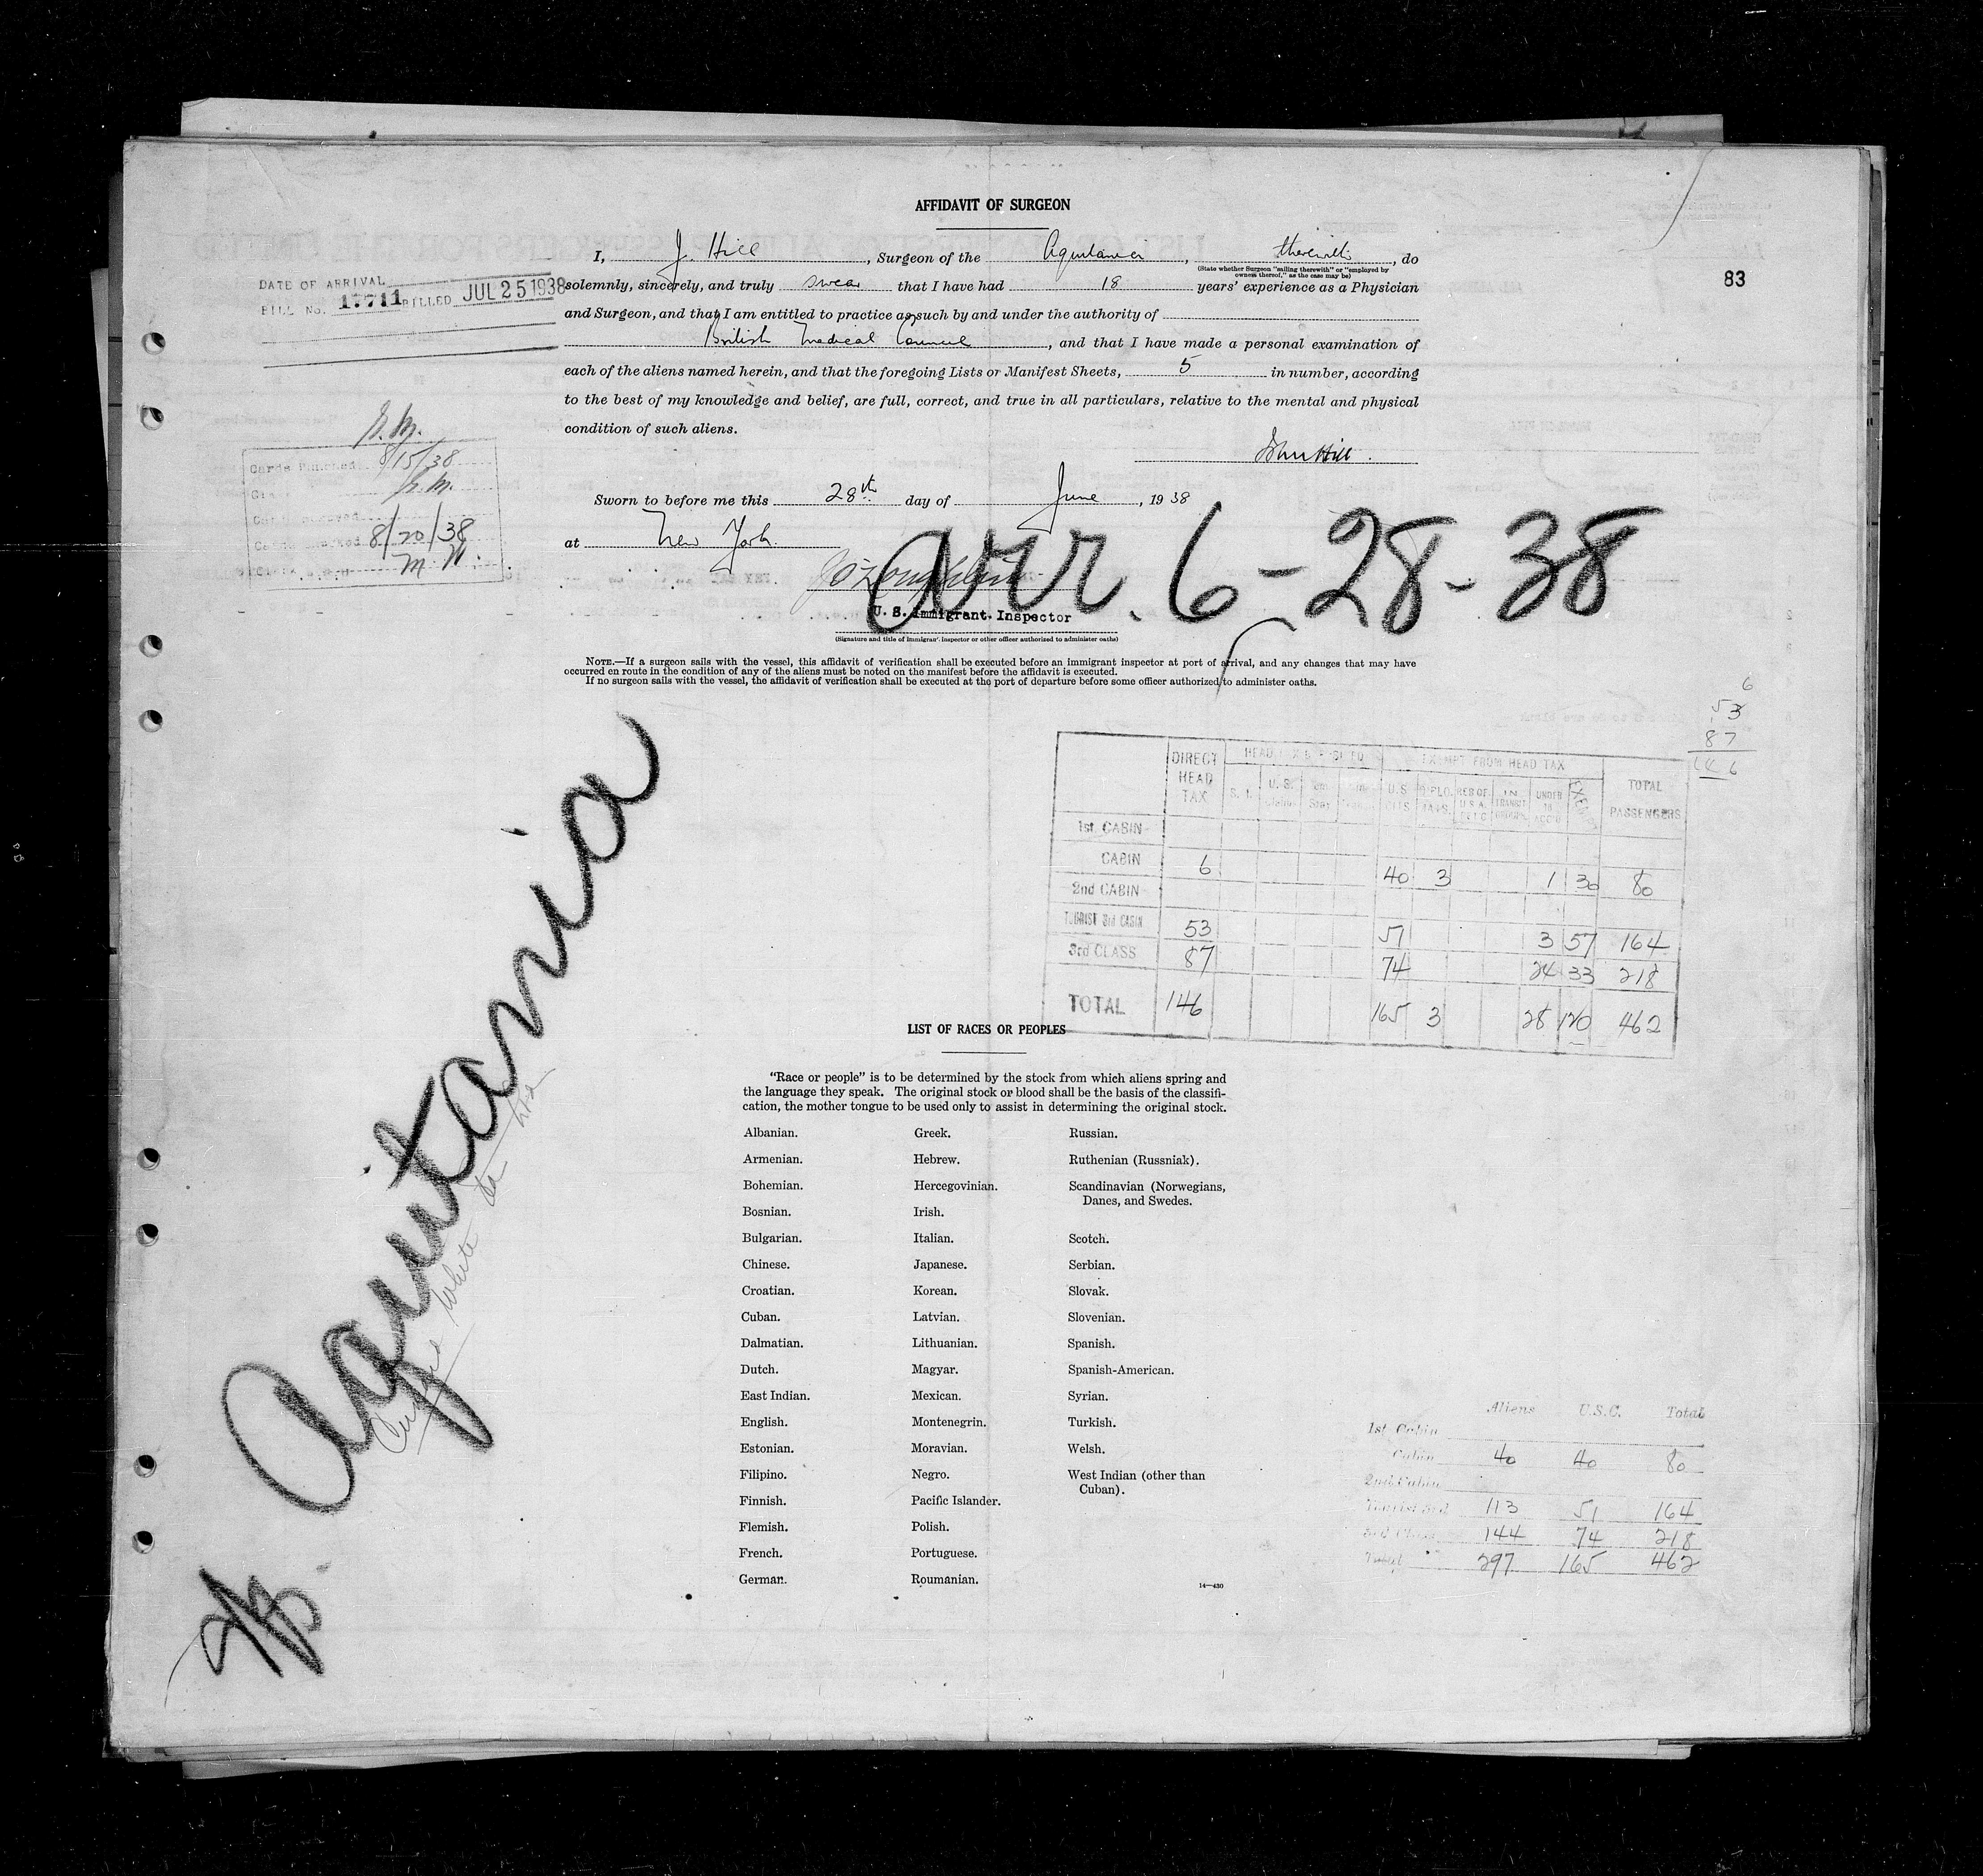 AFFIDAVIT OF SURGEON
I, J. Hill, Surgeon of the Aquitania, therewith, do
(State whether Surgeon "sailing therewith" or "employed by
owners thereof," as the case may be)
83
DATE OF ARRIVAL
BILL No. 17711 BILLED JUL 25 1938
solemnly, sincerely, and truly swear that I have had 18 years' experience as a Physician
and Surgeon, and that I am entitled to practice as such by and under the authority of
British Medical Council, and that I have made a personal examination of
each of the aliens named herein, and that the foregoing Lists or Manifest Sheets, 5 in number, according
to the best of my knowledge and belief, are full, correct, and true in all particulars, relative to the mental and physical
condition of such aliens.
John Hill.
Cards Punched 8/15/38
8/20/38
Sworn to before me this 28th day of June, 1938
at New York.
arr. 6-28-38
U. S. Immigrant Inspector
(Signature and title of immigrant inspector or other officer authorized to administer oaths)
NOTE.—If a surgeon sails with the vessel, this affidavit of verification shall be executed before an immigrant inspector at port of arrival, and any changes that may have
occurred en route in the condition of any of the aliens must be noted on the manifest before the affidavit is executed.
If no surgeon sails with the vessel, the affidavit of verification shall be executed at the port of departure before some officer authorized to administer oaths.
6
53
87
146
DIRECT HEAD TAX EXEMPT FROM HEAD TAX TOTAL PASSENGERS
S. I. U. S. U.S. CITS DIPLO. RES OF U.S.A. IN TRANSIT UNDER 16 ACC'D EXEMPT
1st. CABIN
CABIN 6 40 3 1 30 80
2nd CABIN
TOURIST 3rd CABIN 53 51 3 57 164
3rd CLASS 87 74 24 33 218
TOTAL 146 165 3 28 120 462
Aquitania
Cunard White Star Line
LIST OF RACES OR PEOPLES
"Race or people" is to be determined by the stock from which aliens spring and
the language they speak. The original stock or blood shall be the basis of the classifi-
cation, the mother tongue to be used only to assist in determining the original stock.
Albanian. Greek. Russian.
Armenian. Hebrew. Ruthenian (Russniak).
Bohemian. Hercegovinian. Scandinavian (Norwegians,
Danes, and Swedes.
Bosnian. Irish.
Bulgarian. Italian. Scotch.
Chinese. Japanese. Serbian.
Croatian. Korean. Slovak.
Cuban. Latvian. Slovenian.
Dalmatian. Lithuanian. Spanish.
Dutch. Magyar. Spanish-American.
East Indian. Mexican. Syrian.
English. Montenegrin. Turkish.
Estonian. Moravian. Welsh.
Filipino. Negro. West Indian (other than
Cuban).
Finnish. Pacific Islander.
Flemish. Polish.
French. Portuguese.
German. Roumanian.
14—430
Aliens U.S.C. Total
1st Cabin
Cabin 40 40 80
2nd Cabin
Tourist 3rd 113 51 164
3rd Class 144 74 218
Total 297 165 462